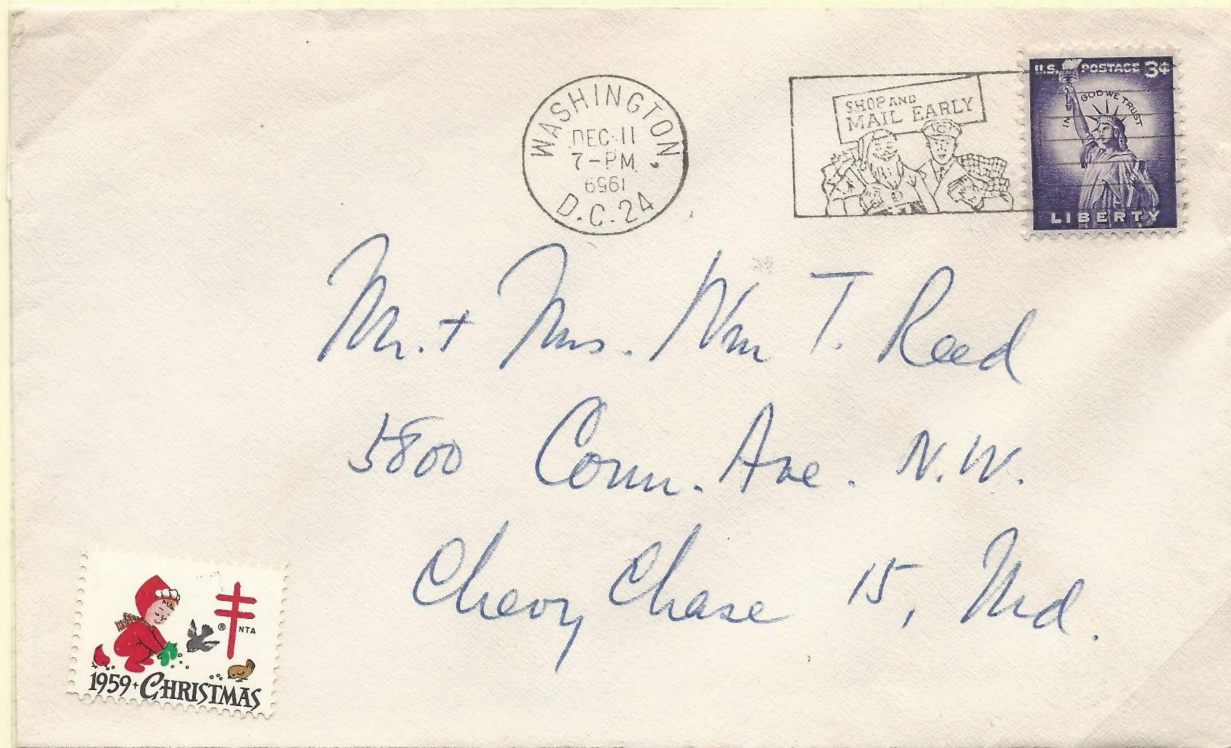 WASHINGTON,
DEC 11
7-PM
1959
D.C. 24
SHOP AND
MAIL EARLY
U.S. POSTAGE 3¢
IN GOD WE TRUST
LIBERTY
Mr. + Mrs. Wm T. Reed
5800 Conn. Ave. N.W.
Chevy Chase 15, Md.
® NTA
1959 + CHRISTMAS